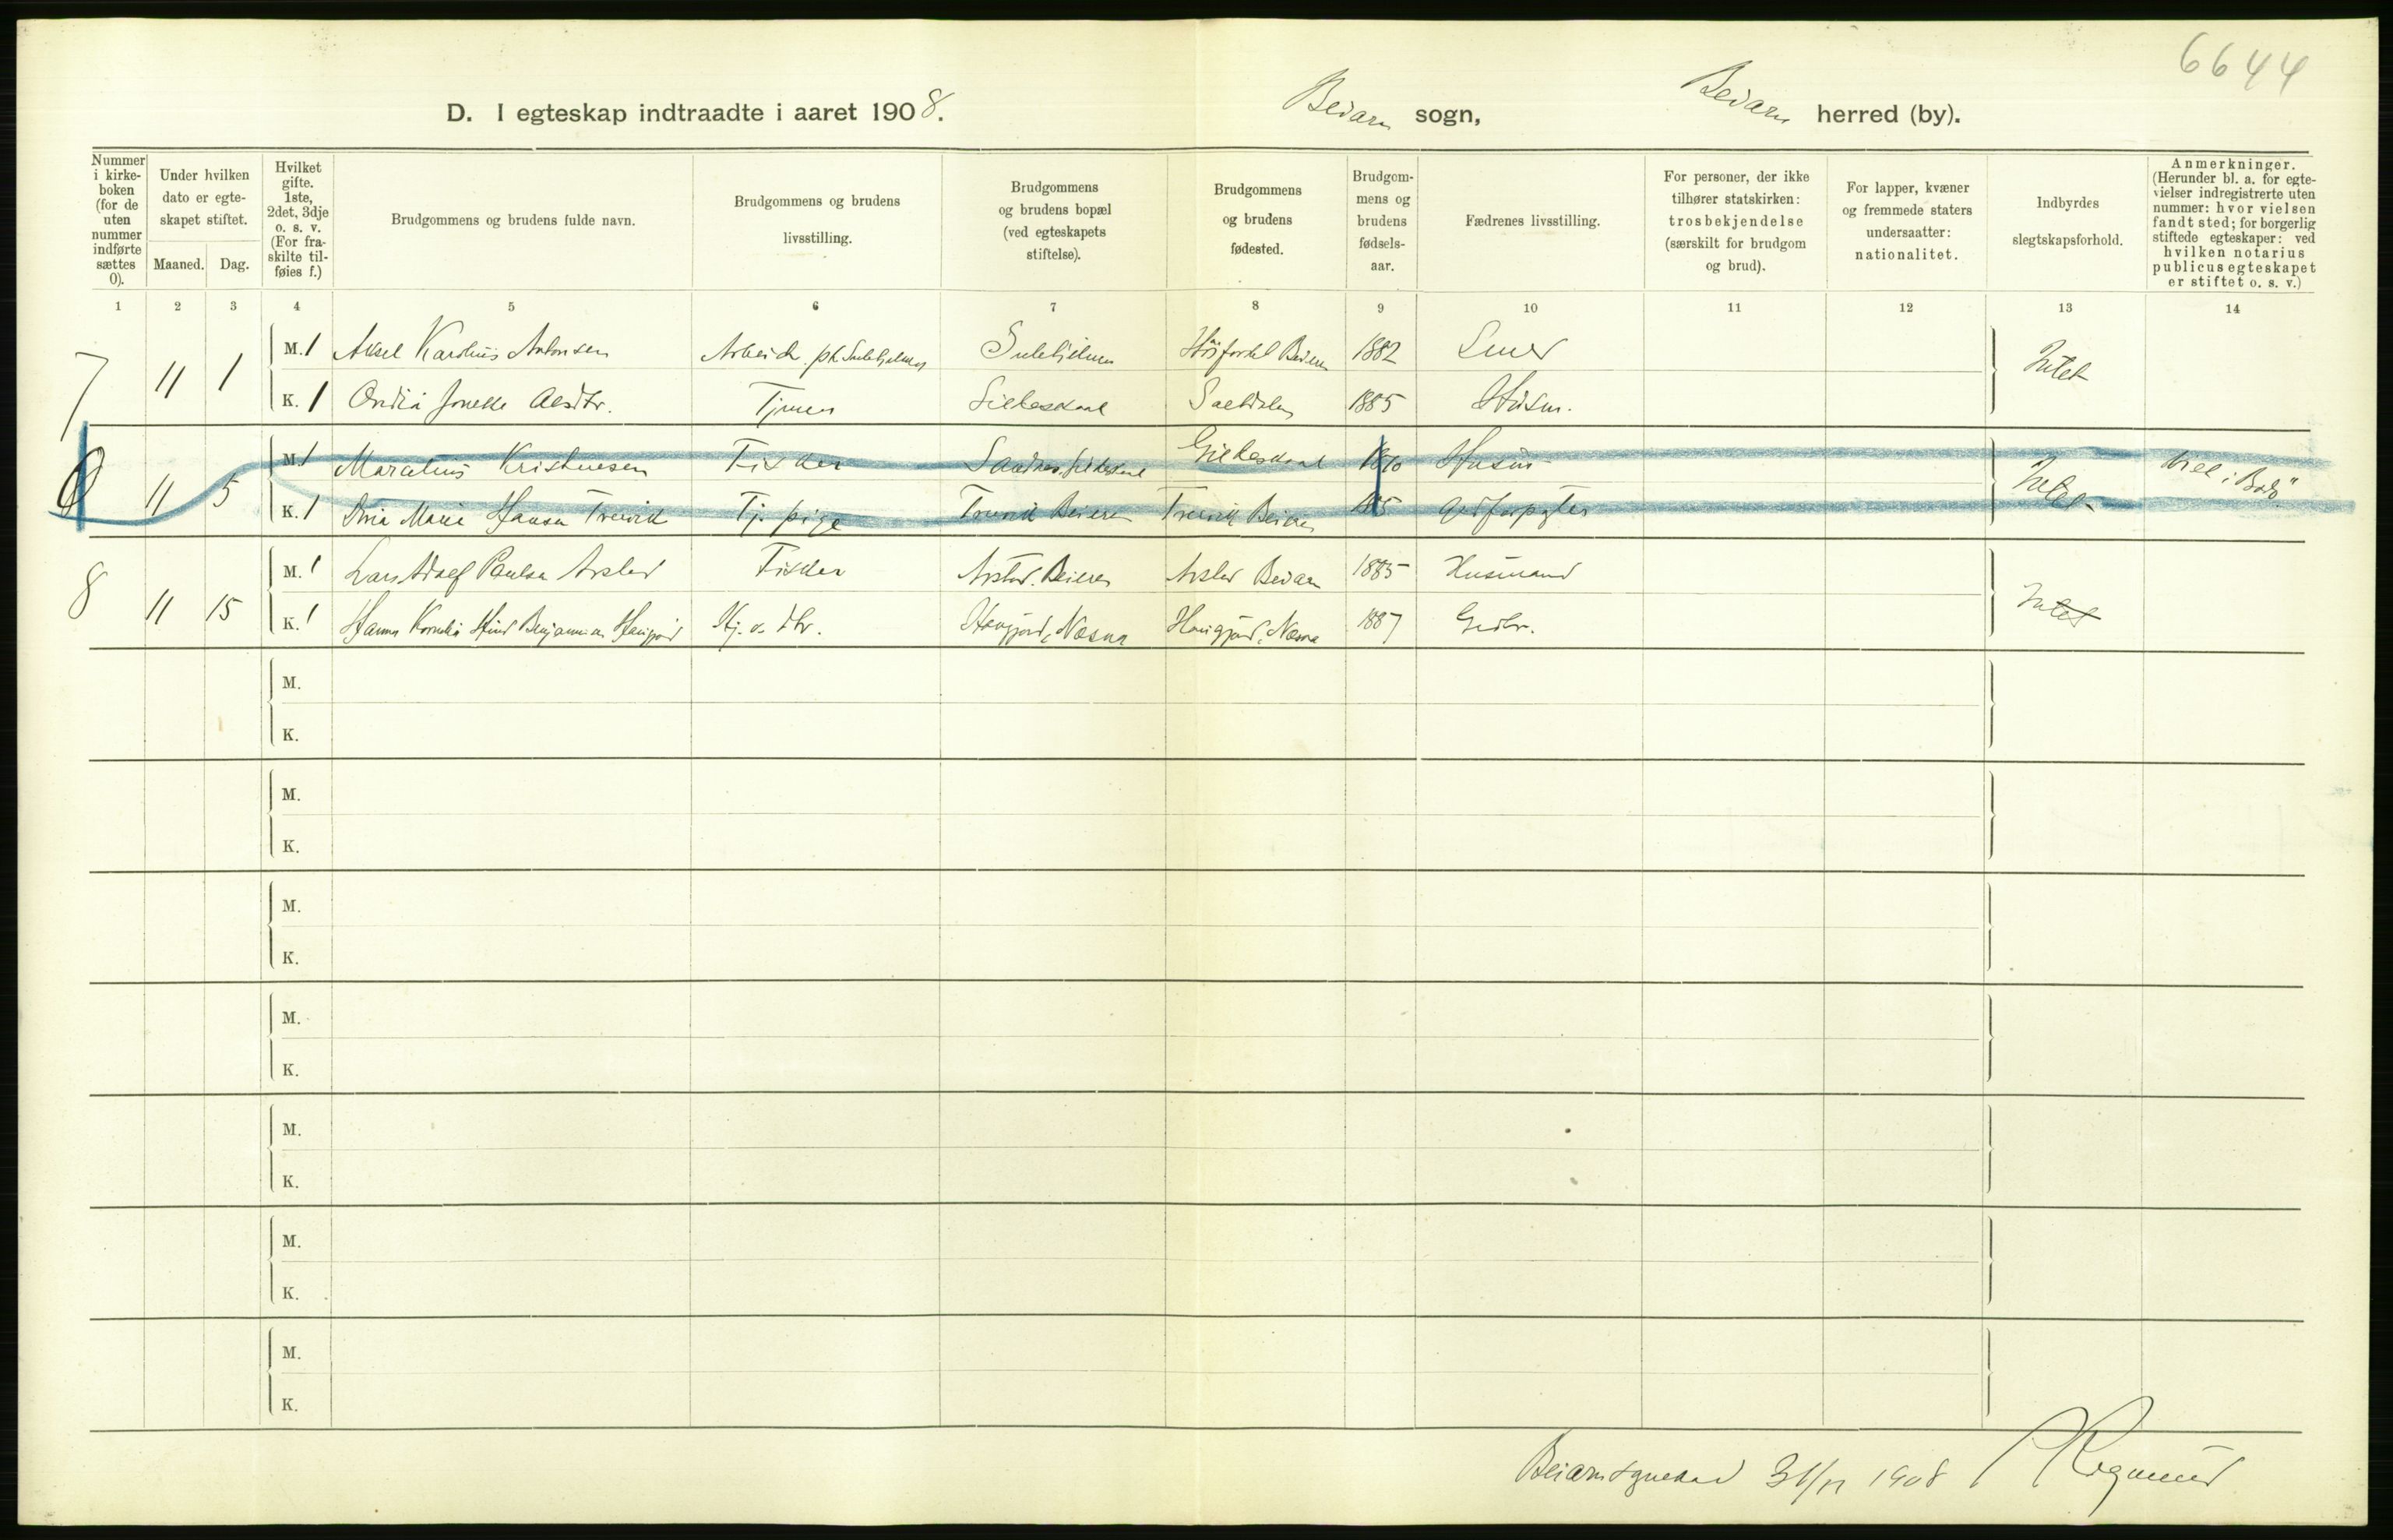 6644
D. I egteskap indtraadte i aaret 1908. Beiarn sogn, Beiarn herred (by).
Nummer i kirke-boken (for de uten nummer indførte sættes 0).
Under hvilken dato er egte-skapet stiftet.
Maaned. Dag.
Hvilket gifte. 1ste, 2det, 3dje o. s. v. (For fra-skilte til-føies f.)
Brudgommens og brudens fulde navn.
Brudgommens og brudens livsstilling.
Brudgommens og brudens bopæl (ved egteskapets stiftelse).
Brudgommens og brudens fødested.
Brudgom-mens og brudens fødsels-aar.
Fædrenes livsstilling.
For personer, der ikke tilhører statskirken: trosbekjendelse (særskilt for brudgom og brud).
For lapper, kvæner og fremmede staters undersaatter: nationalitet.
Indbyrdes slegtskapsforhold.
Anmerkninger. (Herunder bl. a. for egte-vielser indregistrerte uten nummer: hvor vielsen fandt sted; for borgerlig stiftede egteskaper: ved hvilken notarius publicus egteskapet er stiftet o. s. v.)
1 2 3 4 5 6 7 8 9 10 11 12 13 14
7 11 1 M. 1 Aksel Karolius Antonsen Arbeider Sulitjelma Beiarn 1882 Smed Intet
K. 1 Ondia Jonette Tjener Gildeskaal Saltdalen 1885 Husm.
0 11 5 M. 1 Marelius Kristensen Fisker Sandnes, Gildeskaal Gildeskaal Husm. Intet Viet i Bodö
K. 1 Maria Hansen Trervik Tj. pige Trervik Beieren Trervik Beieren
8 11 15 M. 1 Lars Adolf Paulsen Arstad Fisker Arstad Beieren Arstad Beiarn 1885 Husmand Intet
K. 1 Hanna Benjaminsen Nesna Nesna 1887 Grdbr.
M.
K.
M.
K.
M.
K.
M.
K.
M.
K.
M.
K.
M.
K.
Beiarn 31/12 1908